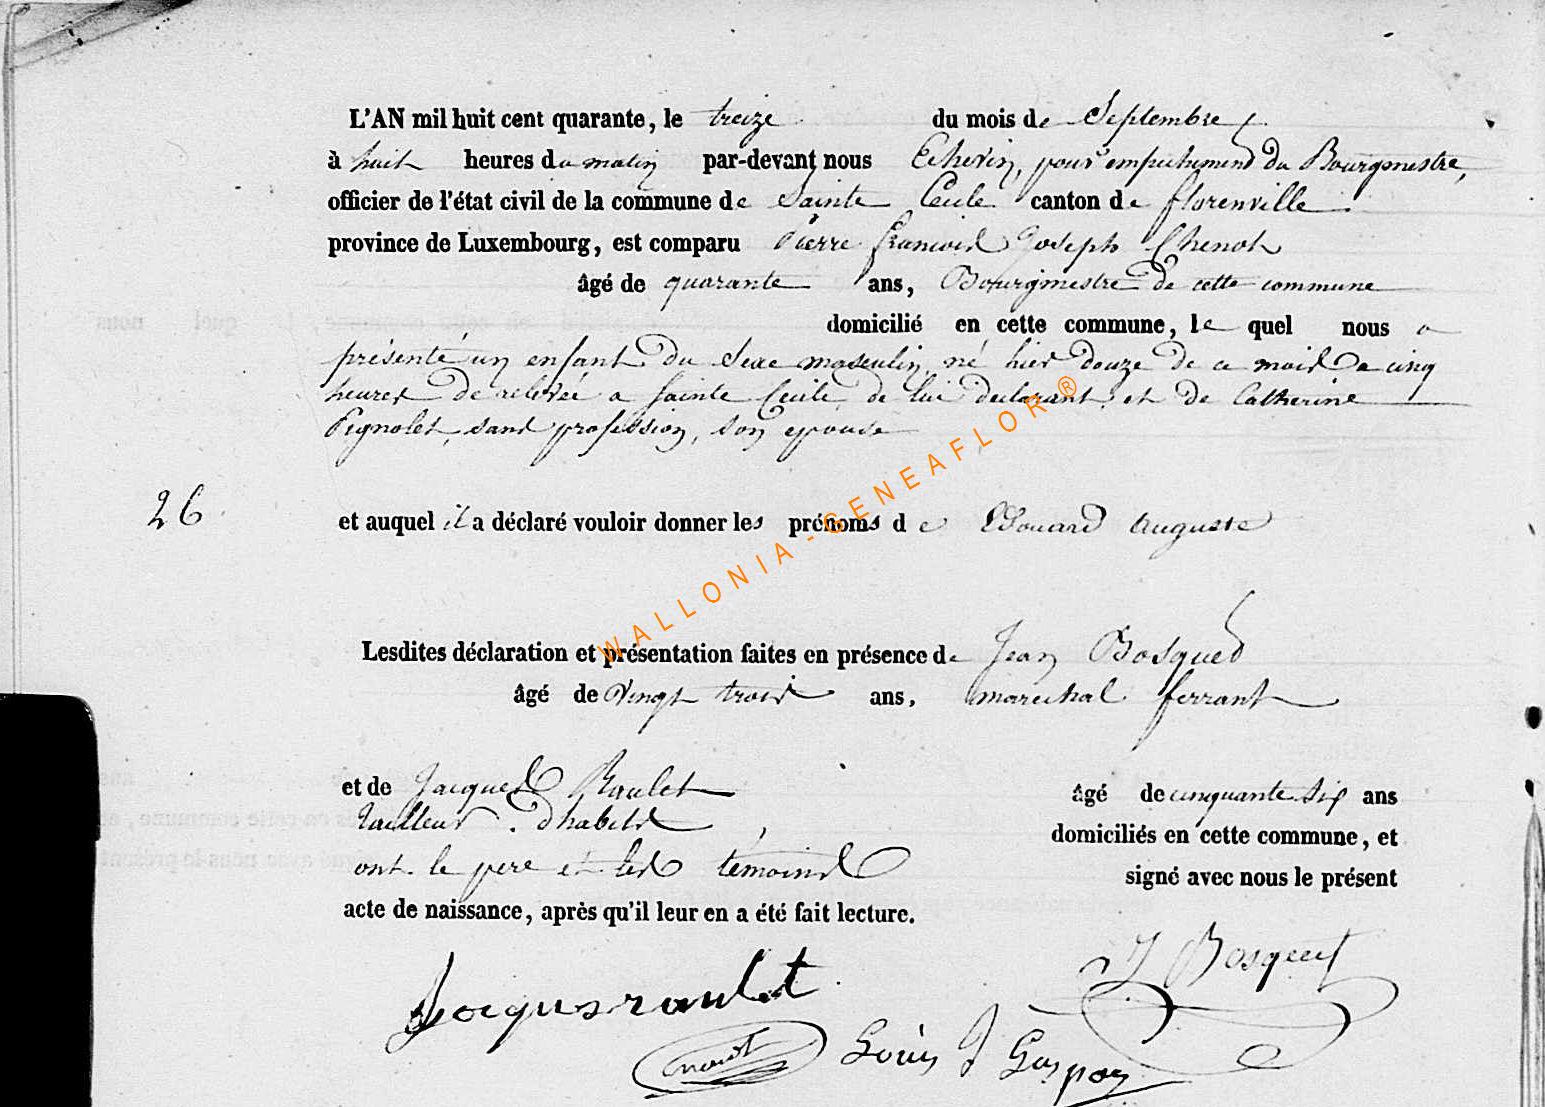 L'AN mil huit cent quarante, le treize du mois de Septembre
à huit heures du matin par-devant nous Echevin, pour empechement du Bourgmestre,
officier de l'état civil de la commune de Sainte Cecile canton de florenville
province de Luxembourg, est comparu Pierre francois Joseph Chenot
âgé de quarante ans, Bourgmestre de cette commune
domicilié en cette commune, le quel nous a
présenté un enfant du sexe masculin, né hier douze de ce mois a cinq
heures de relevée a sainte Cecile, de lui declarant, et de Catherine
Pignolet, sans profession, son epouse
26
et auquel il a déclaré vouloir donner les prénoms de Edouard Auguste
Lesdites déclaration et présentation faites en présence de Jean Bosqued
âgé de vingt trois ans, marechal ferrant
et de Jacques Raulet âgé de cinquante six ans
tailleur d'habits, domiciliés en cette commune, et
ont le pere et les témoins signé avec nous le présent
acte de naissance, après qu'il leur en a été fait lecture.
J Bosquet
Jacqus raulet
Louis J
WALLONIA-GENEAFLOR®